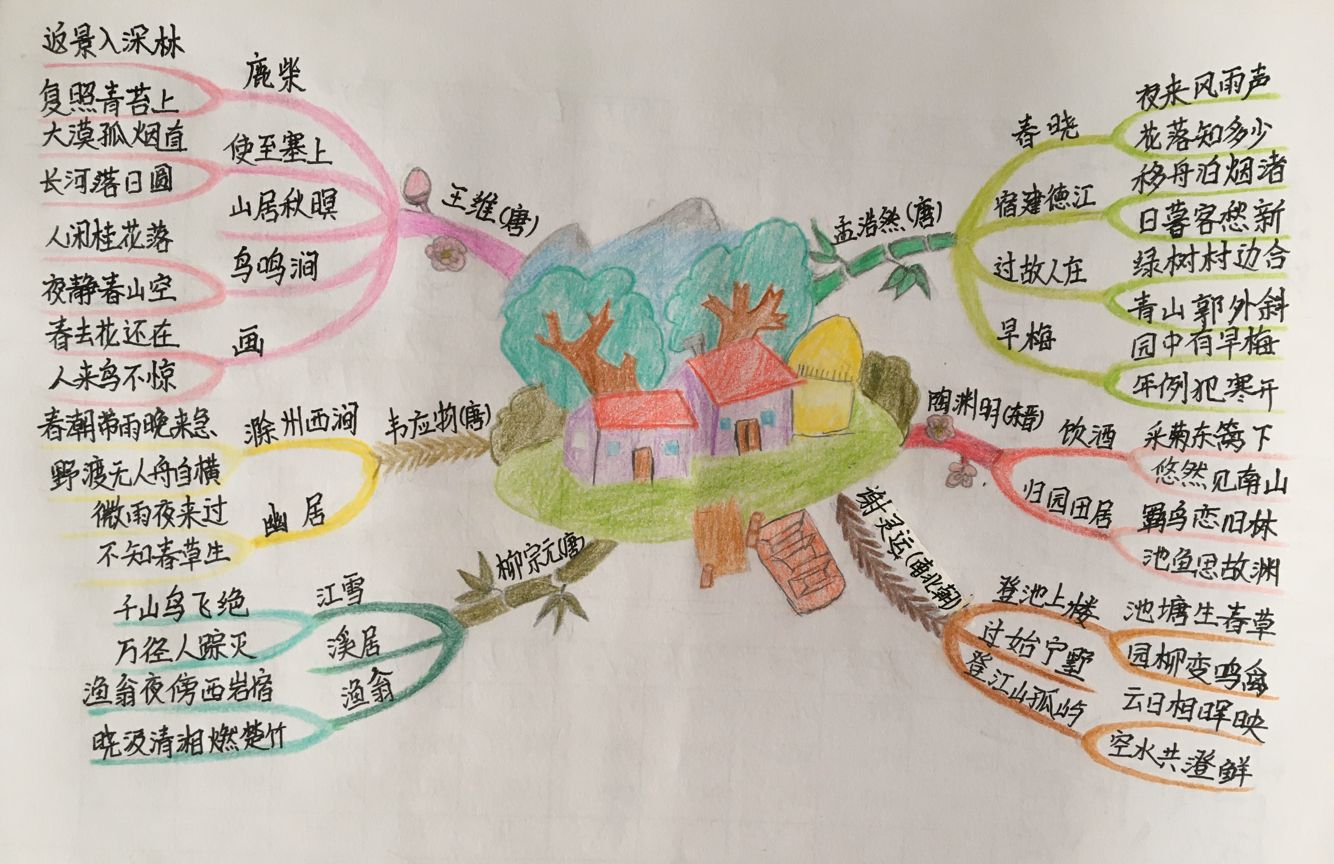 王维(唐)
鹿柴
返景入深林
复照青苔上
使至塞上
大漠孤烟直
长河落日圆
山居秋暝
鸟鸣涧
人闲桂花落
夜静春山空
画
春去花还在
人来鸟不惊
韦应物(唐)
滁州西涧
春潮带雨晚来急
野渡无人舟自横
幽居
微雨夜来过
不知春草生
柳宗元(唐)
江雪
千山鸟飞绝
万径人踪灭
溪居
渔翁
渔翁夜傍西岩宿
晓汲清湘燃楚竹
孟浩然(唐)
春晓
夜来风雨声
花落知多少
宿建德江
移舟泊烟渚
日暮客愁新
过故人庄
绿树村边合
青山郭外斜
早梅
园中有早梅
年例犯寒开
陶渊明(东晋)
饮酒
采菊东篱下
悠然见南山
归园田居
羁鸟恋旧林
池鱼思故渊
谢灵运(南北朝)
登池上楼
池塘生春草
园柳变鸣禽
过始宁墅
登江山孤屿
云日相晖映
空水共澄鲜